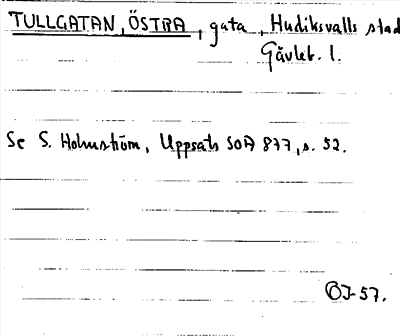 TULLGATAN, ÖSTRA, gata, Hudiksvalls stad
Gävleb. l.
Se S. Holmström, Uppsats SOA 877, s. 52.
OJ-57.